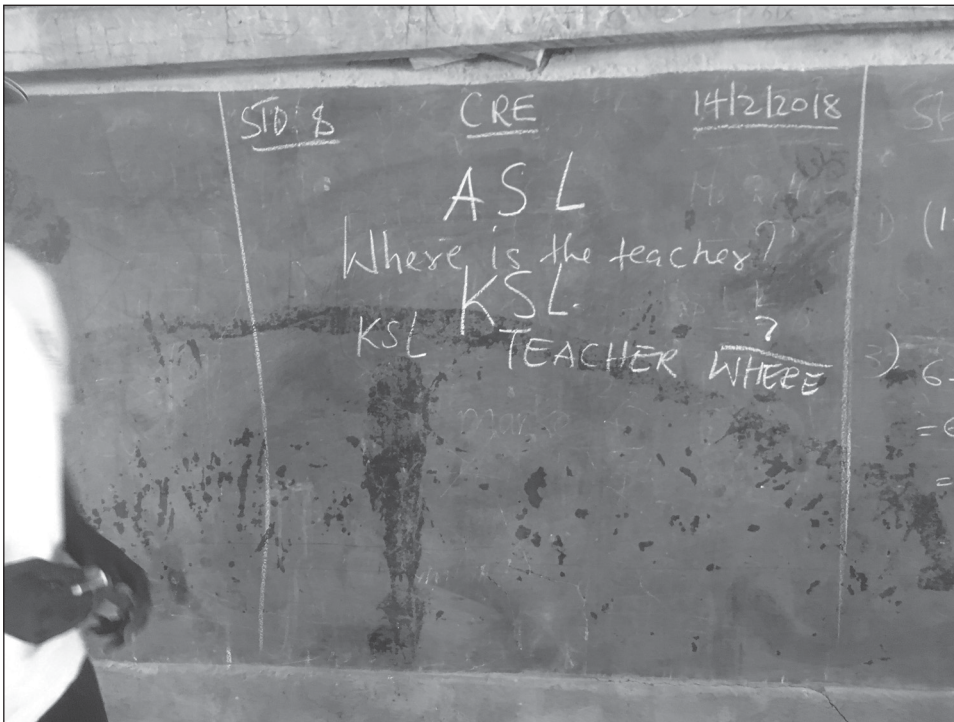 STD: 8 CRE 14/2/2018
ASL
Where is the teacher?
KSL
?
KSL TEACHER WHERE
1) (1
3) 6
= 6
=